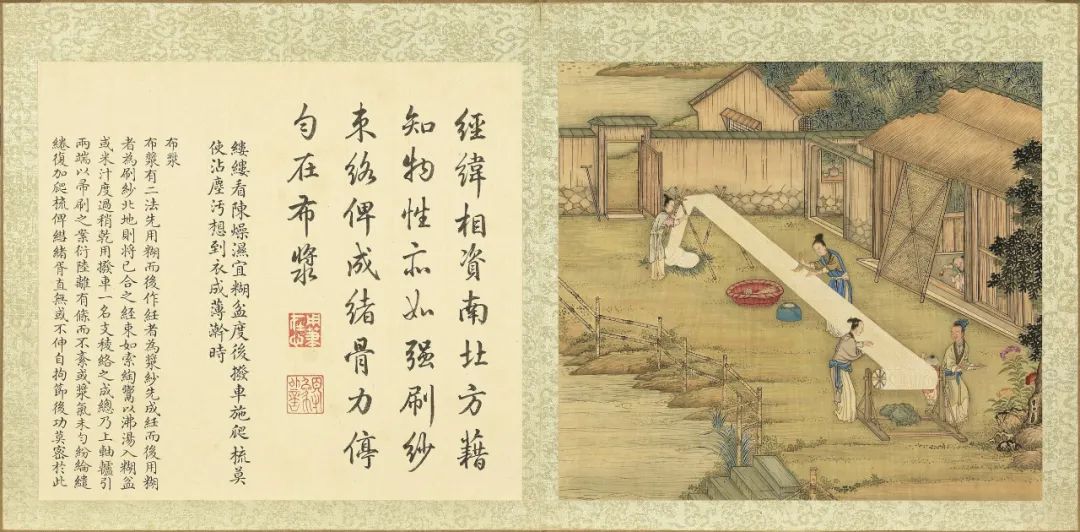 經緯相資南北方藉
知物性亦如强刷紗
束絡俾成緒骨力停
匀在布漿
用筆在心
縷縷看陳燥濕宜糊盆度後撥車施爬梳莫
使沾塵汚想到衣成薄澣時
布漿
布漿有二法先用糊而後作紝者為漿紗先成紝而後用糊
者為刷紗北地則將已合之經束如索綯鬻以沸湯入糊盆
或米汁度過稍乾用撥車一名支棱絡之成總乃上軸轤引
兩端以帚刷之案衍陸離有條而不紊或漿氣未匀紛綸繾
綣復加爬梳俾緒胥直無或不伸自拘節後功莫密於此